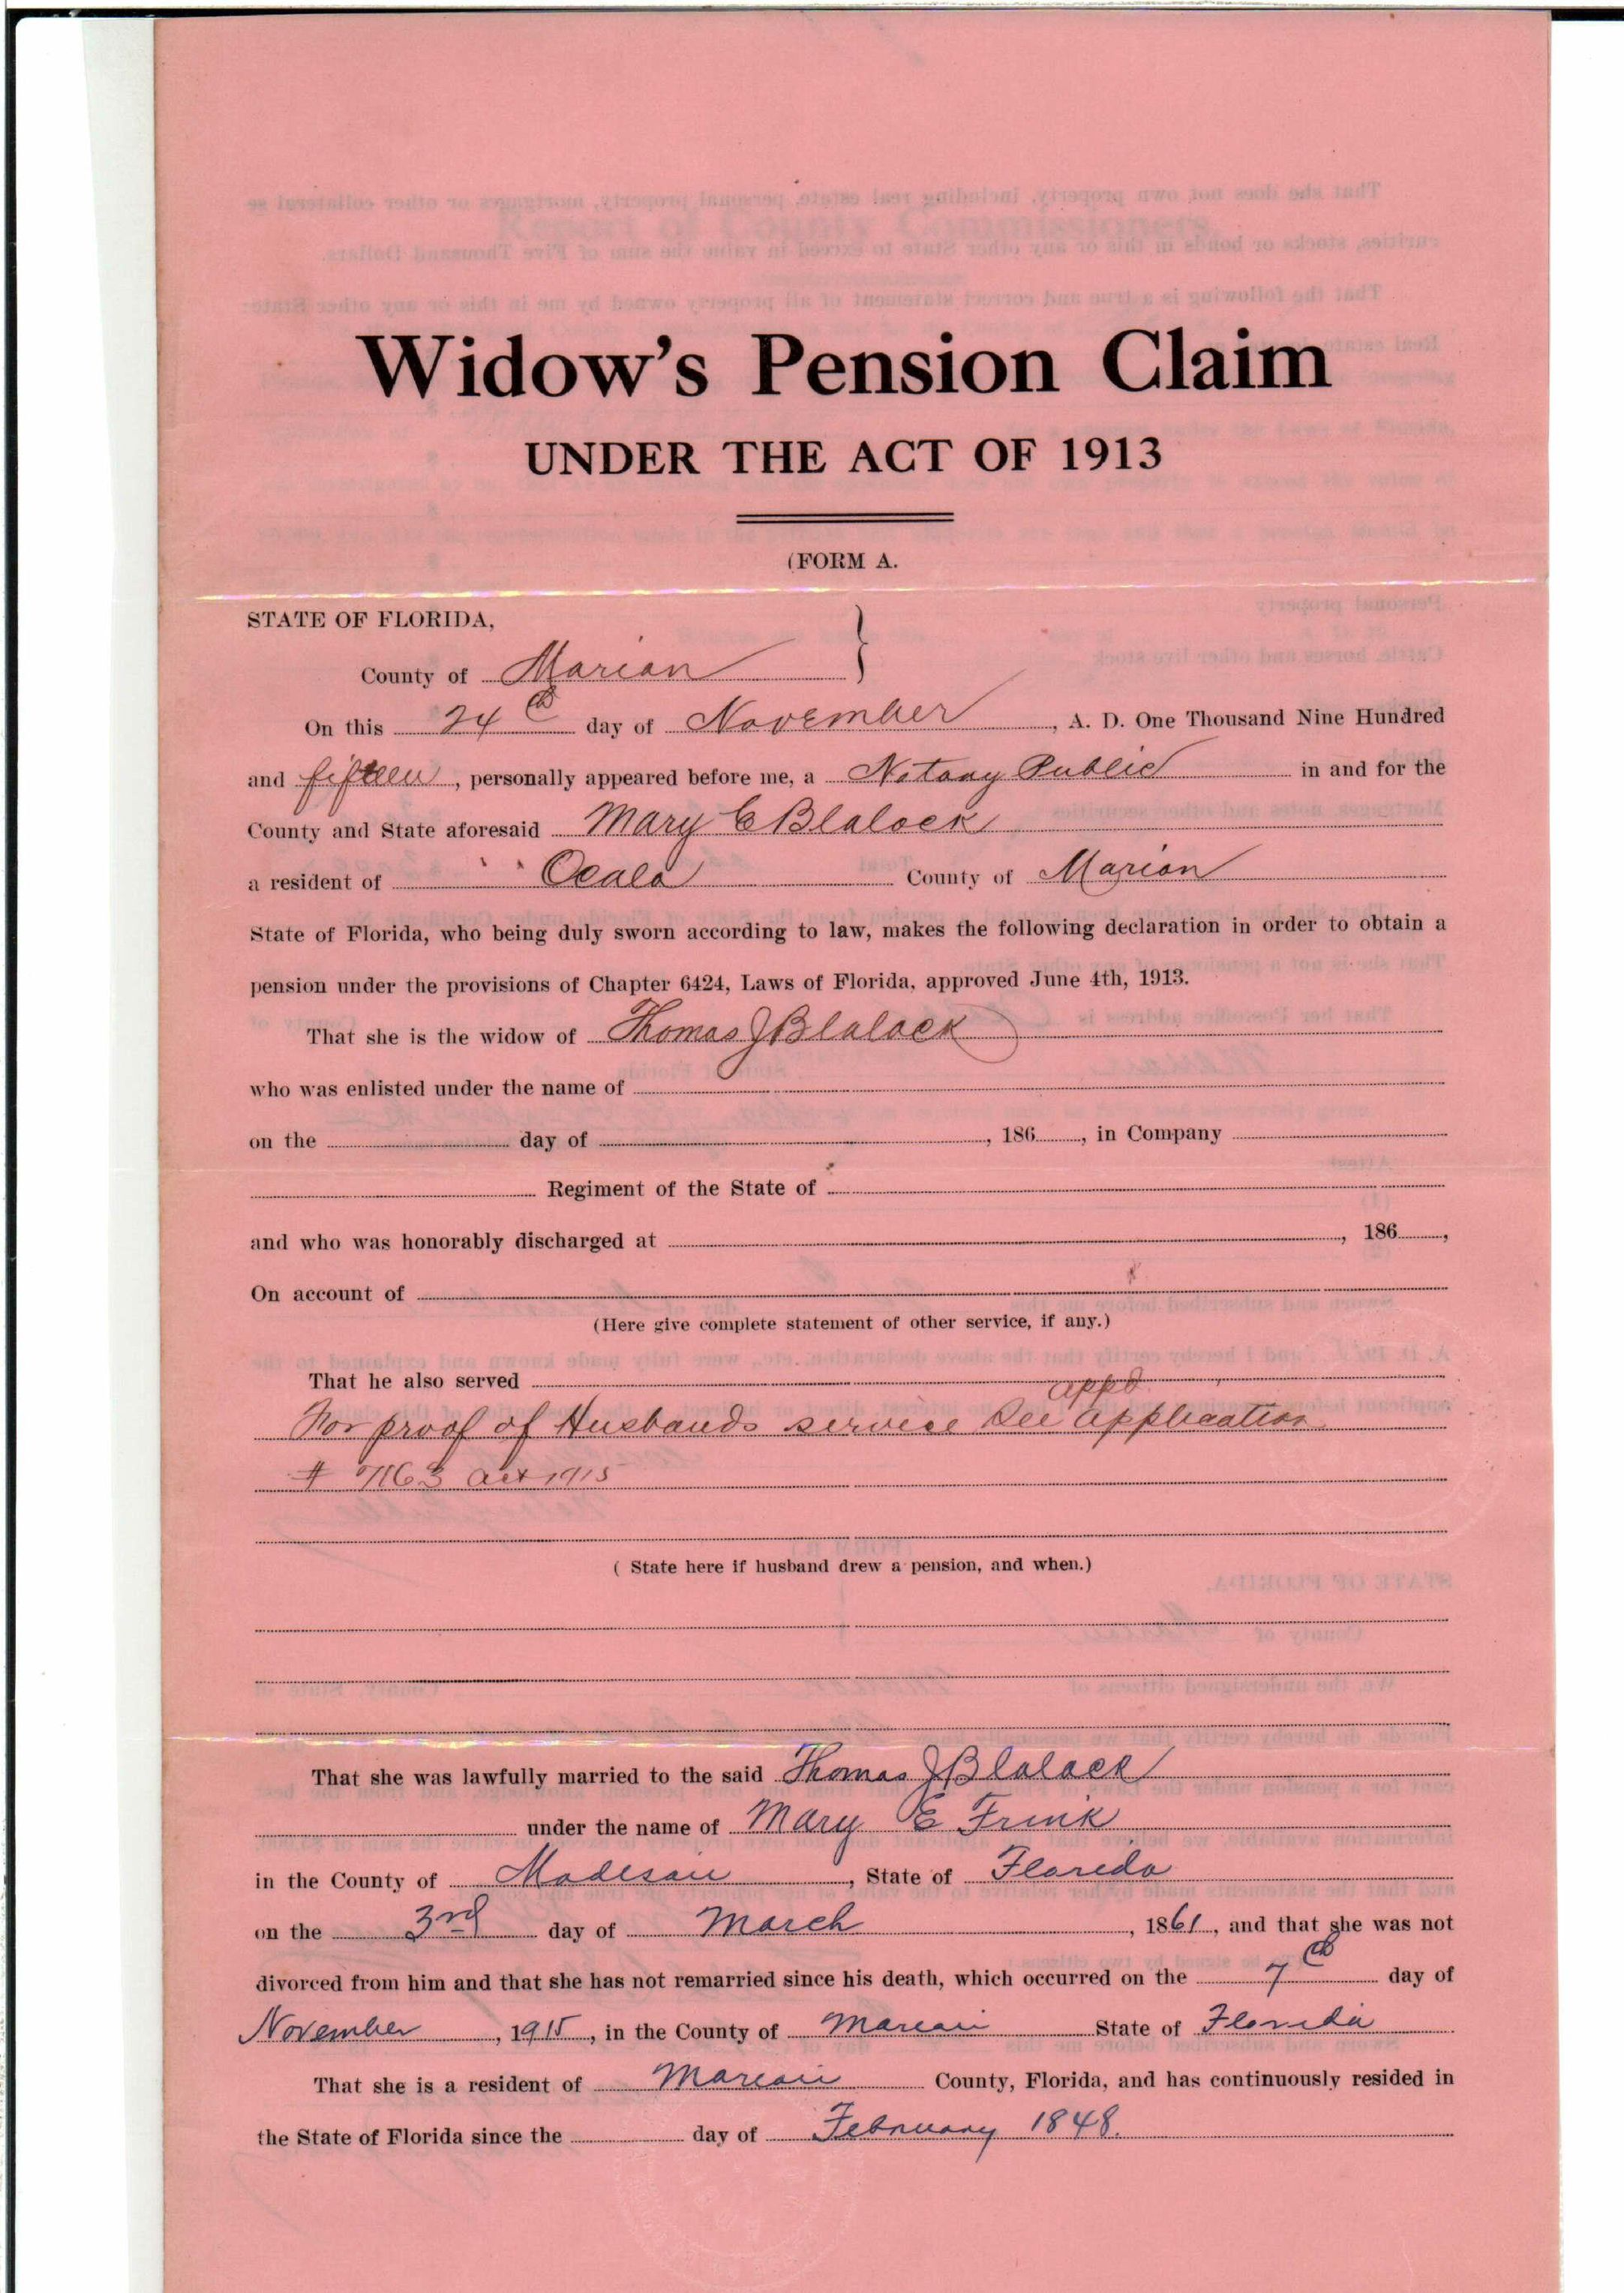 Widow's Pension Claim
UNDER THE ACT OF 1913
(FORM A.
STATE OF FLORIDA,
County of Marion }
On this 24th day of November, A. D. One Thousand Nine Hundred
and fifteen, personally appeared before me, a Notary Public in and for the
County and State aforesaid Mary E Blalock
a resident of Ocala County of Marion
State of Florida, who being duly sworn according to law, makes the following declaration in order to obtain a
pension under the provisions of Chapter 6424, Laws of Florida, approved June 4th, 1913.
That she is the widow of Thomas J Blalock
who was enlisted under the name of
on the day of , 186 , in Company
Regiment of the State of
and who was honorably discharged at , 186 ,
On account of
(Here give complete statement of other service, if any.)
That he also served
appd
For proof of Husbands service See application
# 7163 Act 1915
( State here if husband drew a pension, and when.)
That she was lawfully married to the said Thomas J Blalock
under the name of Mary E Frink
in the County of Madison, State of Florida
on the 3rd day of March, 1861, and that she was not
divorced from him and that she has not remarried since his death, which occurred on the 7th day of
November, 1915, in the County of Marion State of Florida
That she is a resident of Marion County, Florida, and has continuously resided in
the State of Florida since the day of February 1848.